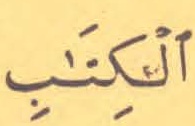 اَلْكِتَٰبِ